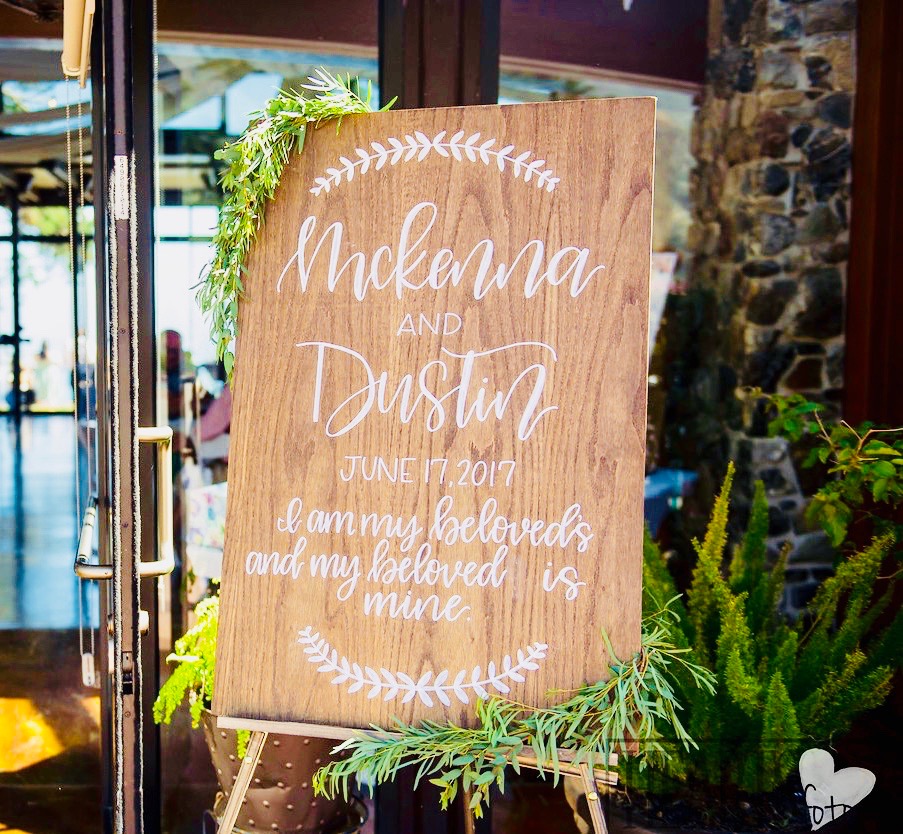 Mckenna
AND
Dustin
JUNE 17, 2017
I am my beloved's
and my beloved is
mine.